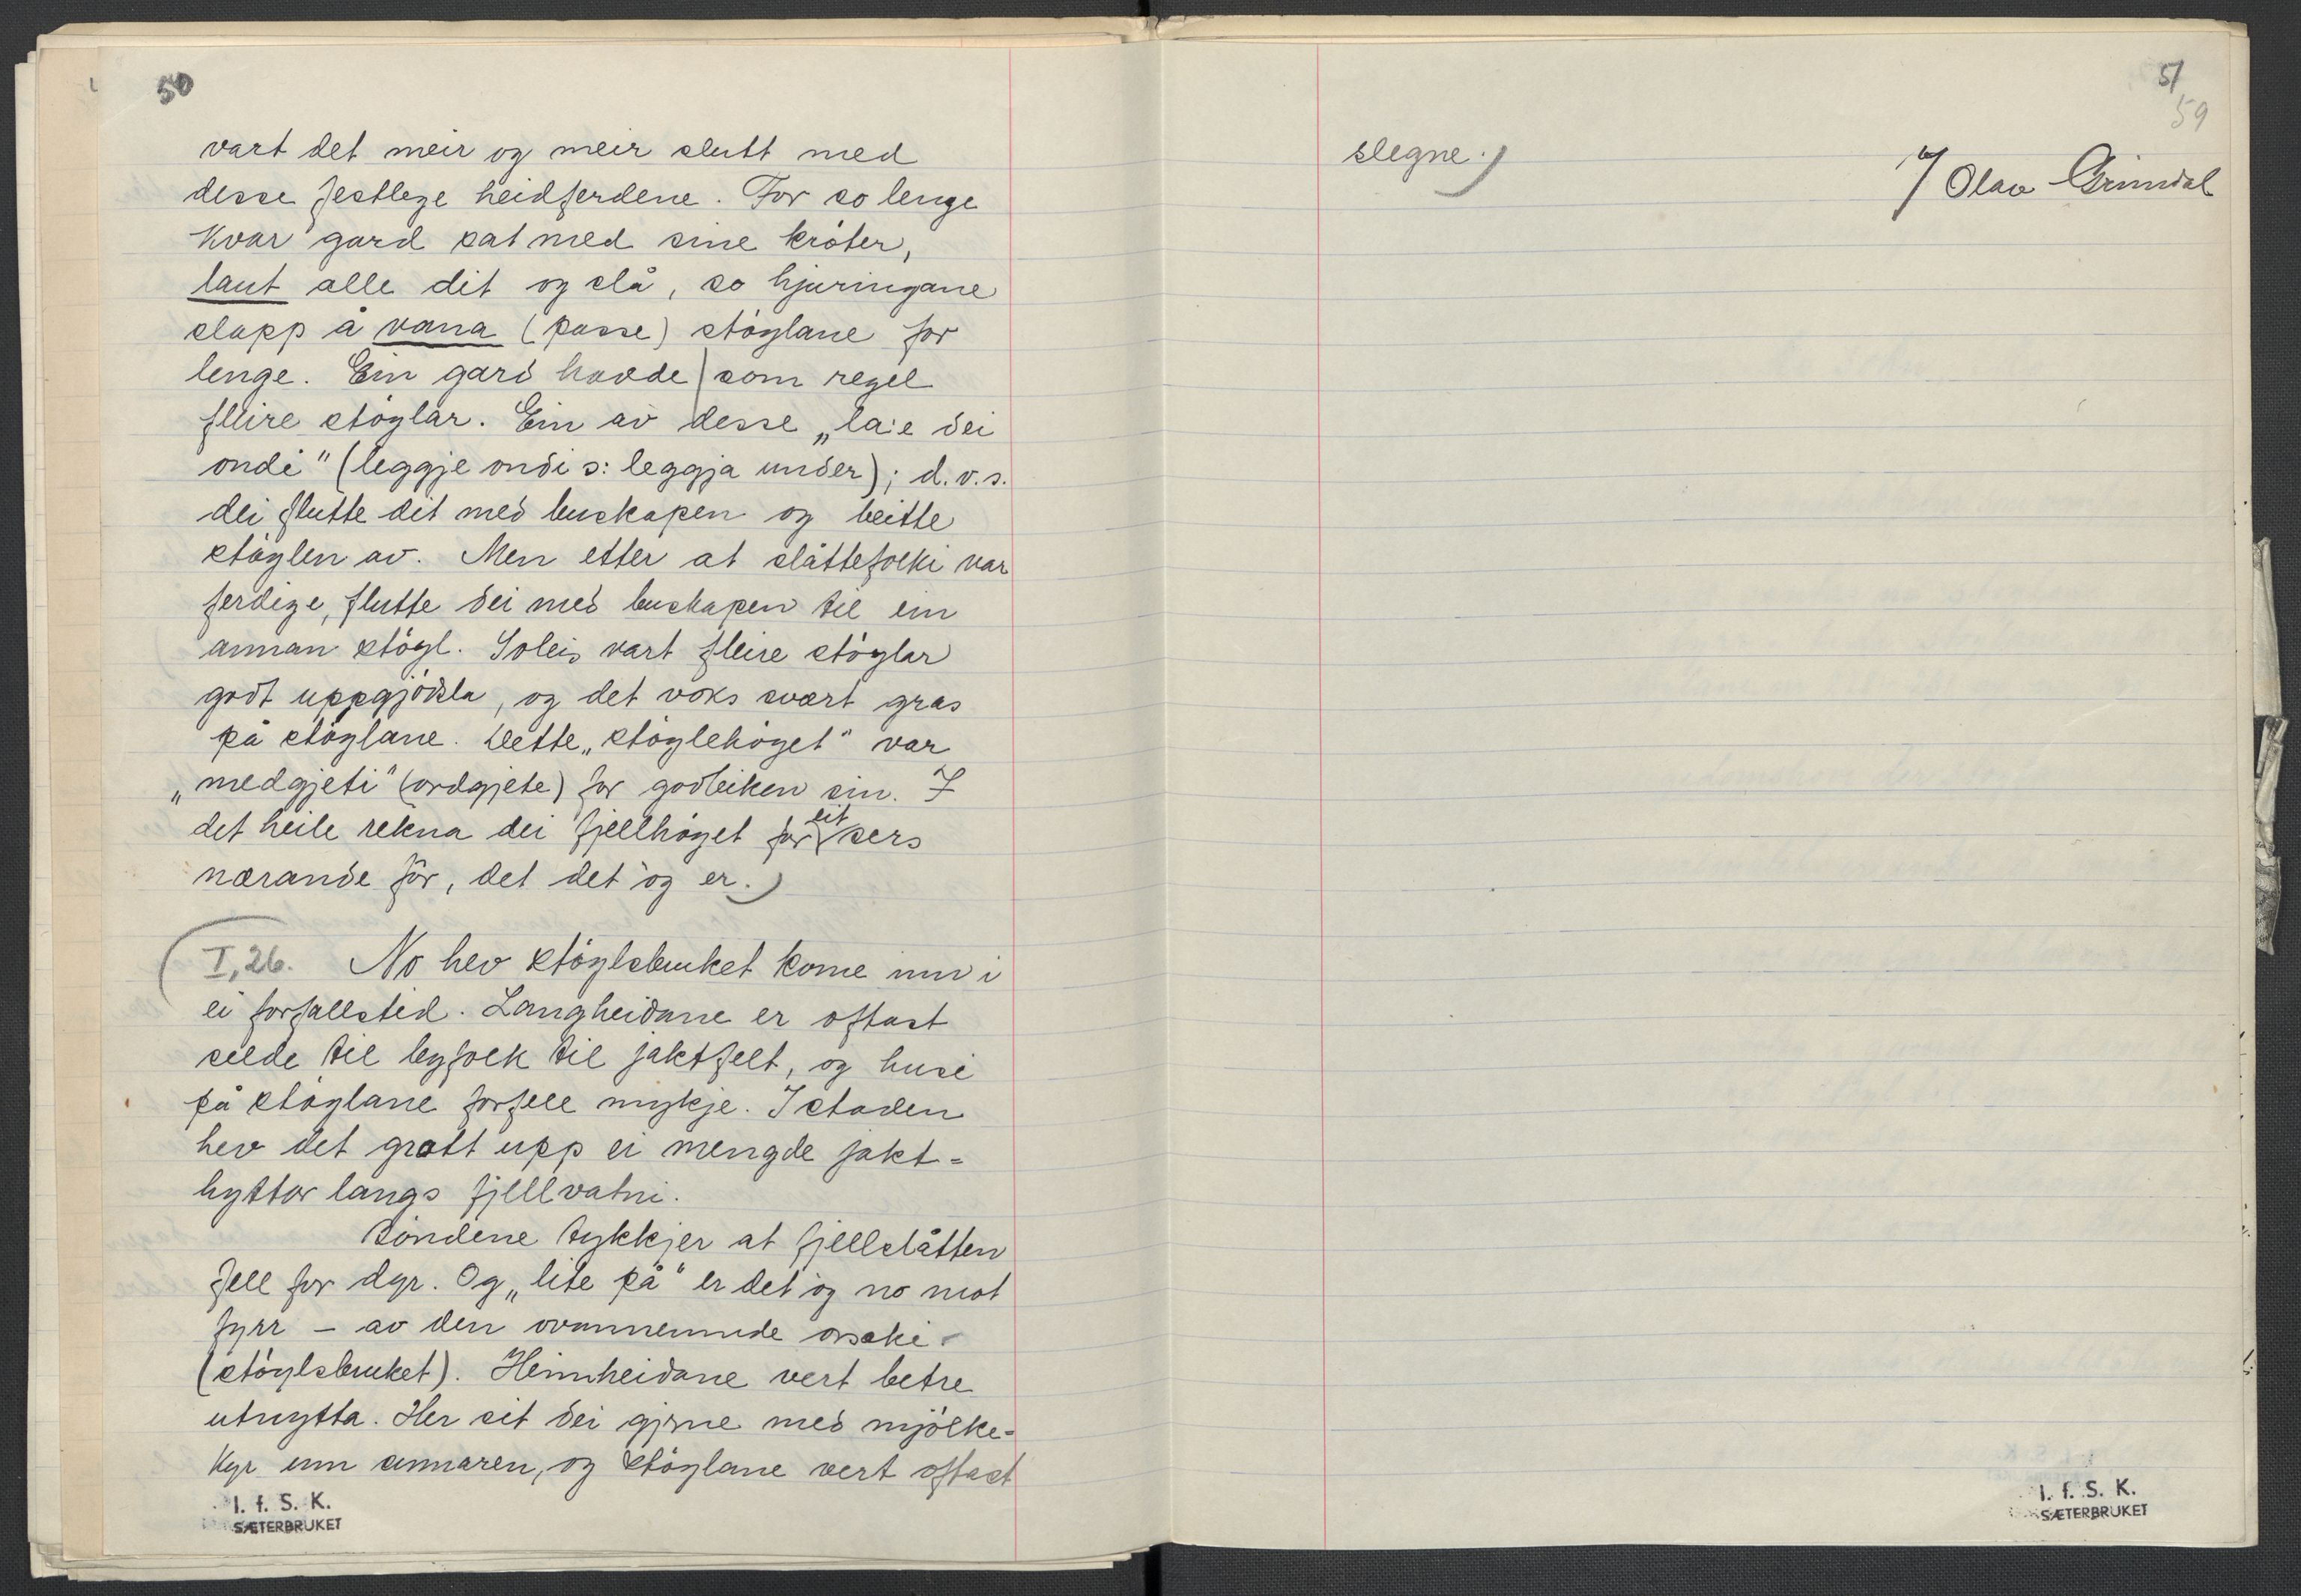 50
vart det meir og meir slutt med
desse festlege heidferdene. For so lenge
kvar gard sat med sine króter,
laut alle dit og slå, so hjuringane
slapp å vana (passe) stöylane for
lenge. Ein gard havde som regel
fleire stöylar. Ein av desse „la'e dei
ondi" (leggje ondi ɔ: leggja under); d.v.s.
dei flutte dit med buskapen og beitte
stöylen av. Men etter at slåttefolki var
ferdige, flutte dei med buskapen til ein
annan stöyl. Soleis vart fleire stöylar
godt uppgjödsla, og det voks svært gras
på stöylane. Dette „stöylehöyet" var
„medgjeti" (ordgjete) for godleiken sin. I
det heile rekna dei fjellhöyet for eit sers
nærande fôr, det det òg er.)
(I, 26. No hev stöylsbruket kome inn i
ei forfallstid. Langheidane er oftast
selde til byfolk til jaktfelt, og husi
på stöylane forfell mykje. I staden
hev det grott upp ei mengde jakt-
hyttor langs fjellvatni.
Böndene tykkjer at fjellslåtten
fell for dyr. Og „lite på" er det òg no mot
fyrr – av den ovannemnde orsaki
(stöylsbruket). Heimheidane vert betre
utnytta. Her sit dei gjerne med mjölke-
kyr um sumaren, og stöylane vert oftast
I. f. S. K.
SÆTERBRUKET
51
59
slegne.)
Olav Grimdal
I. f. S. K.
SÆTERBRUKET